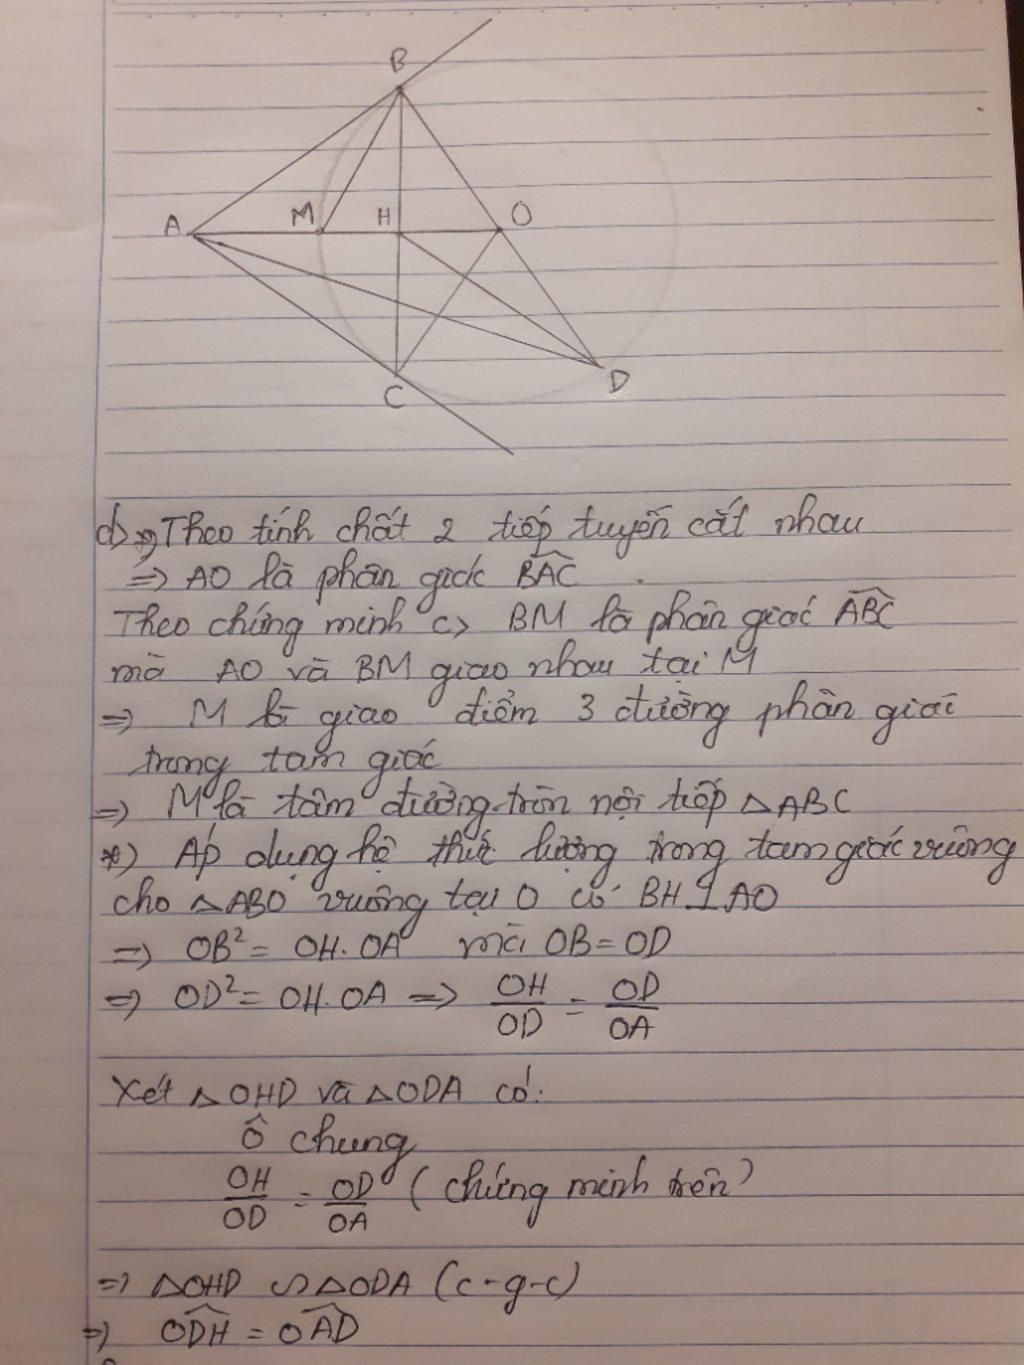 B
A
M
H
O
C
D
d) *) Theo tính chất 2 tiếp tuyến cắt nhau
=> AO là phân giác BAC
Theo chứng minh c> BM là phân giác ABC
mà AO và BM giao nhau tại M
=> M là giao điểm 3 đường phân giác
trong tam giác
=> M là tâm đường tròn nội tiếp △ABC
*) Áp dụng hệ thức lượng trong tam giác vuông
cho △ABO vuông tại O có BH⊥AO
=> OB² = OH.OA mà OB=OD
=> OD² = OH.OA => OH/OD = OD/OA
Xét △OHD và △ODA có:
Ô chung
OH/OD = OD/OA (chứng minh trên)
=> △OHD ∽ △ODA (c-g-c)
=> ODH = OAD